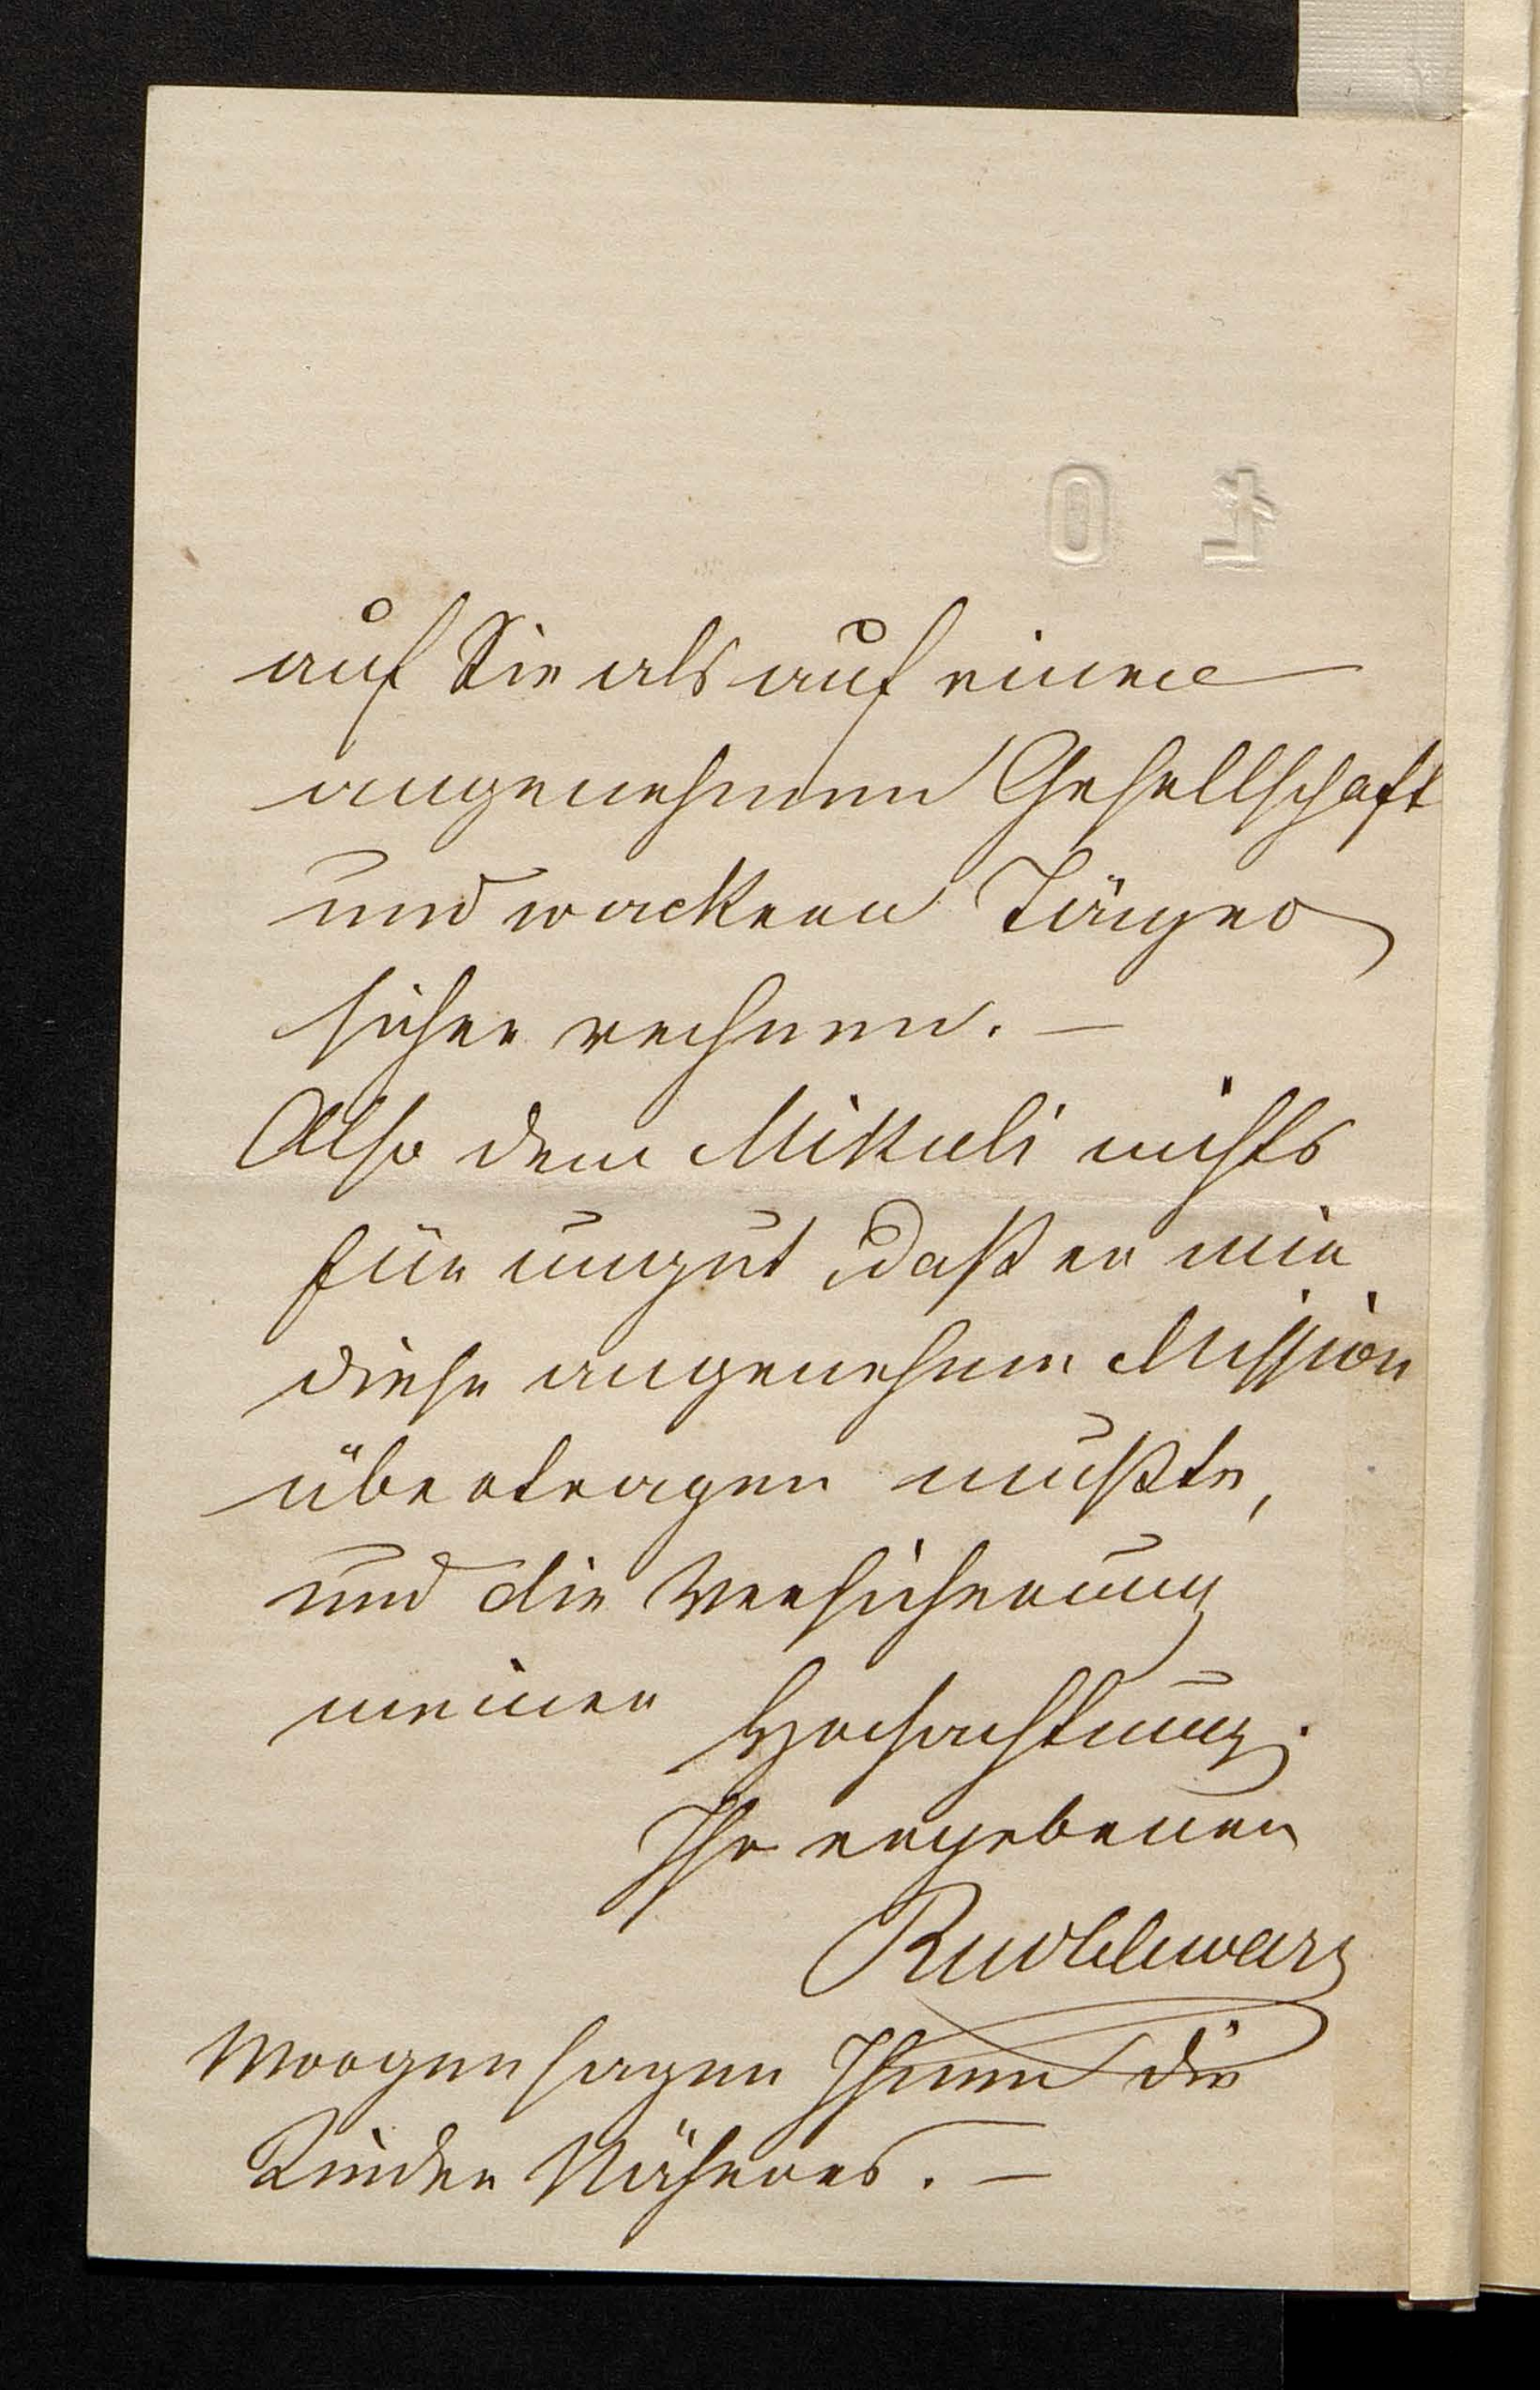 auf Sie als auf einen
angenehmen Gesellschaft
und wackeren Jäger
sicher rechnen. —
Also dem Mikuli nichts
für ungut, daß er mir
diese angenehme Mission
übertragen mußte,
und die Versicherung
meiner Hochachtung.
Ihr ergebener
Morgen sagen Ihnen die
Kinder Näheres. —